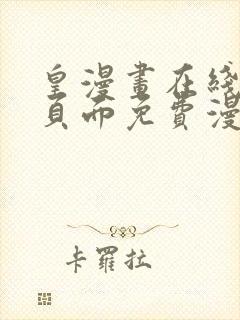 皇漫畫在綫
頁面免費漫
卡羅拉